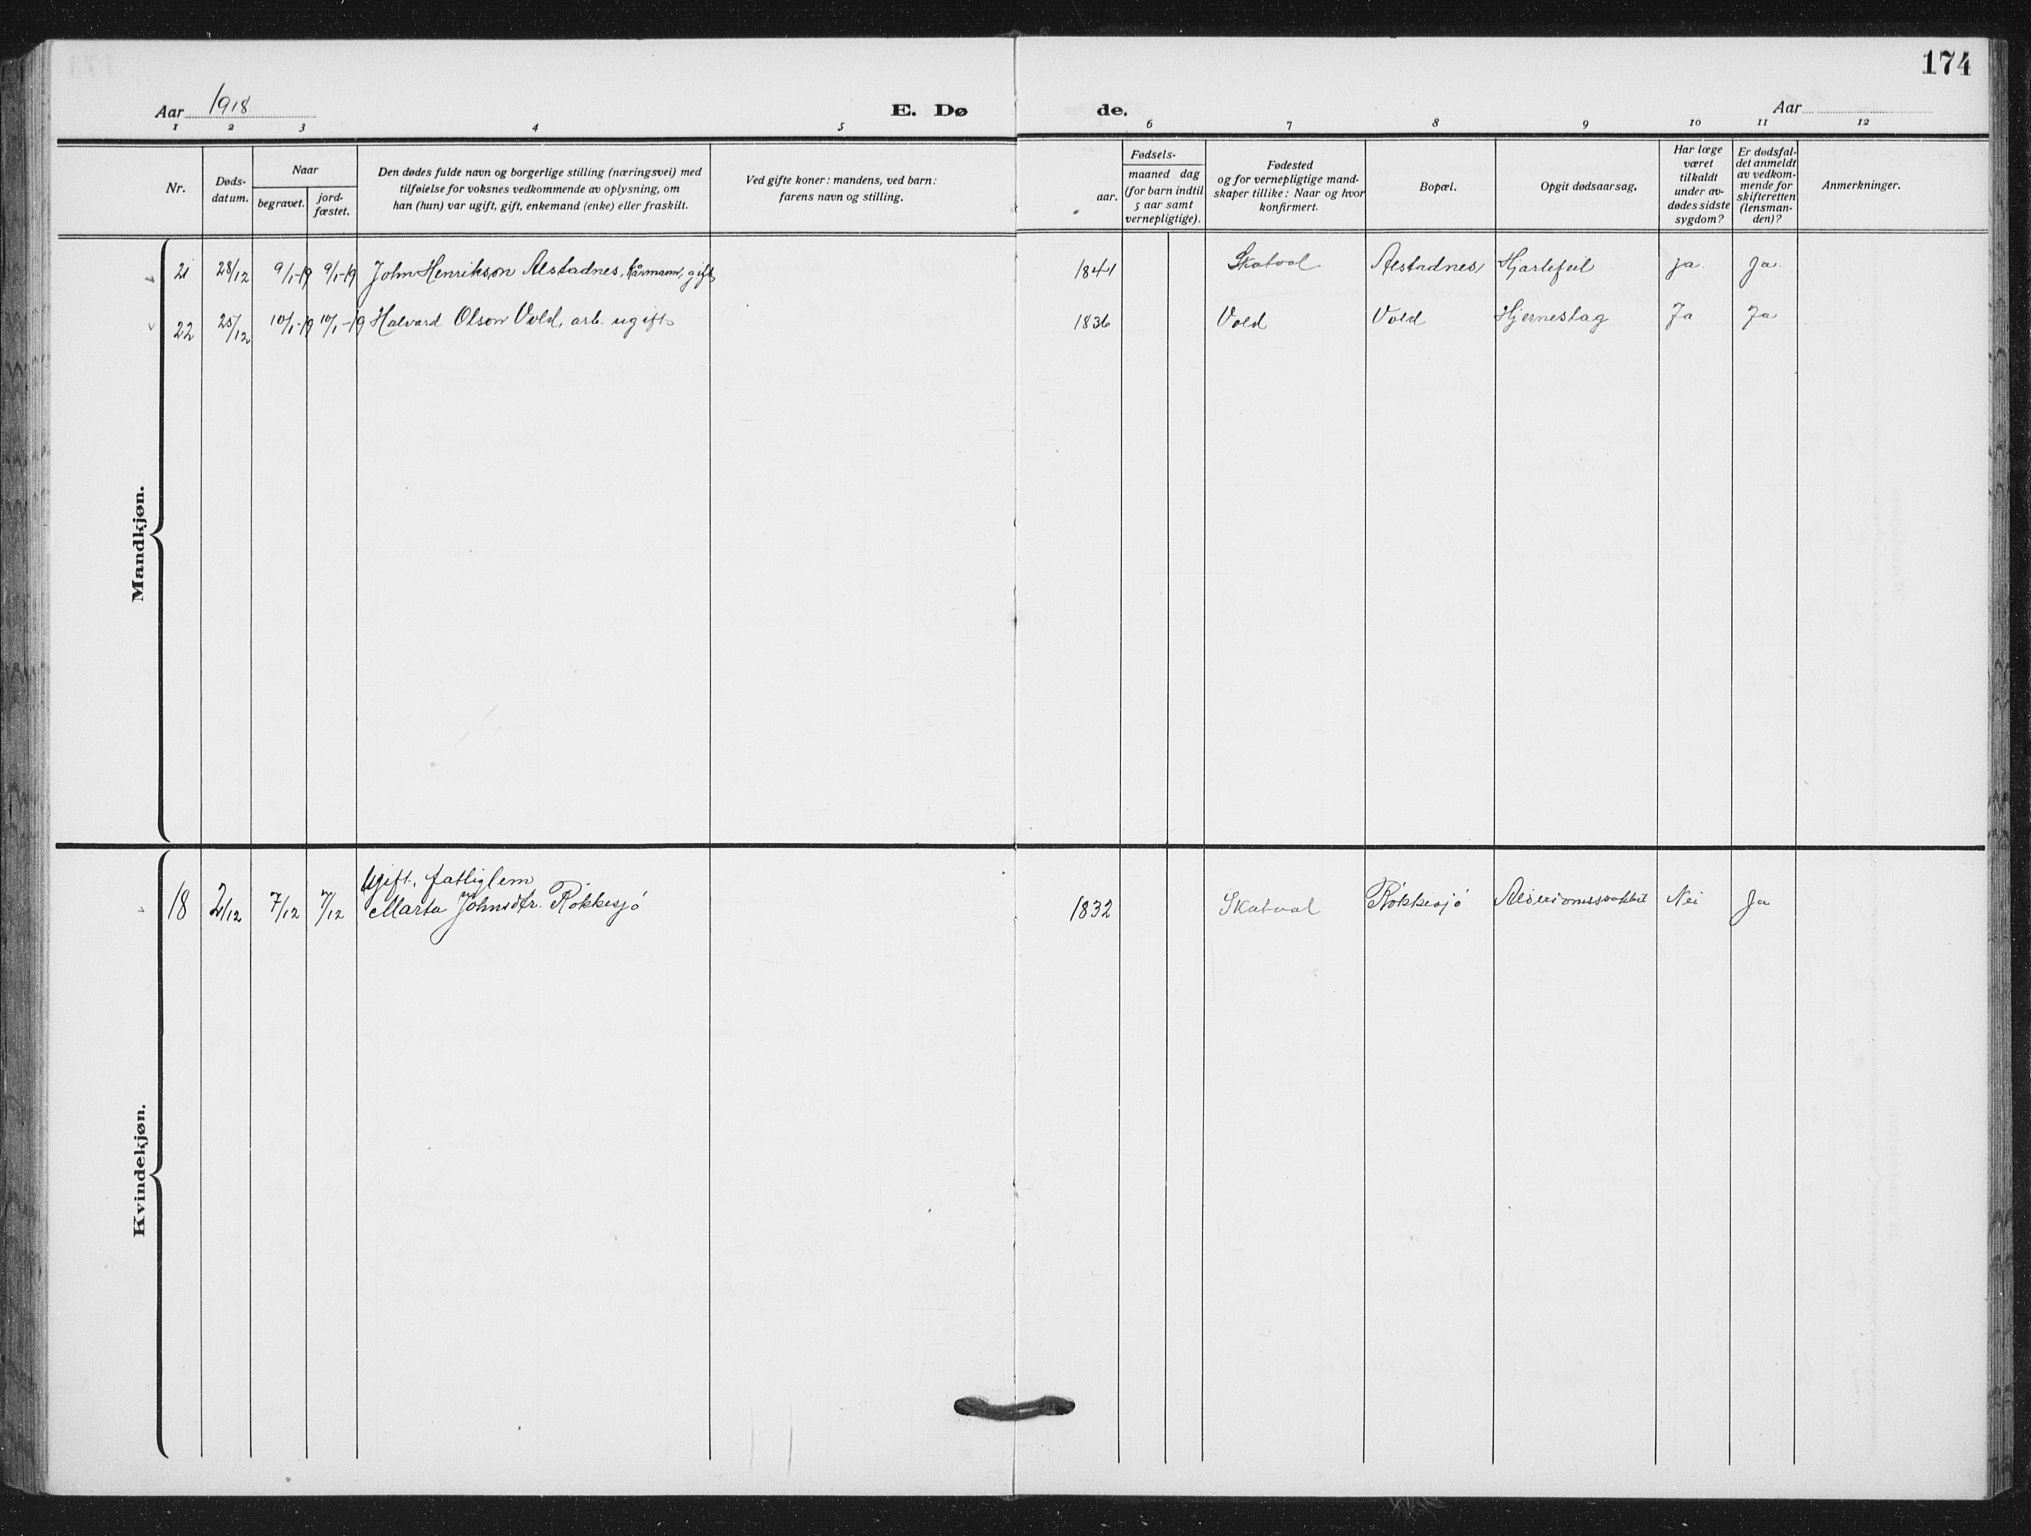 174
Aar 1918
E. Dø
de.
Aar
1 2 3 4 5 6 7 8 9 10 11 12
Nr.
Døds-
datum.
Naar
begravet.
jord-
fæstet.
Den dødes fulde navn og borgerlige stilling (næringsvei) med
tilføielse for voksnes vedkommende av oplysning, om
han (hun) var ugift, gift, enkemand (enke) eller fraskilt.
Ved gifte koner: mandens, ved barn:
farens navn og stilling.
Fødsels-
aar.
maaned dag
(for barn indtil
5 aar samt
vernepligtige).
Fødested
og for vernepligtige mand-
skaper tillike: Naar og hvor
konfirmert.
Bopæl.
Opgit dødsaarsag.
Har læge
været
tilkaldt
under av-
dødes sidste
sygdom?
Er dødsfal-
det anmeldt
av vedkom-
mende for
skifteretten
(lensman-
den)?
Anmerkninger.
Mandkjøn.
21 28/12 9/1-19 9/1-19 John Henrikson Alstadnes, kårmann, gift 1841 Skatval Alstadnes Hjartefeil ja Ja
22 25/12 10/1-19 10/1-19 Halvard Olson Vold, arb. ugift 1836 Vold Vold Hjerneslag Ja Ja
Kvindekjøn.
Ugift, fattiglem
18 2/12 7/12 7/12 Marta Johnsdtr. Røkkesjø 1832 Skatval Røkkesjø Nei Ja